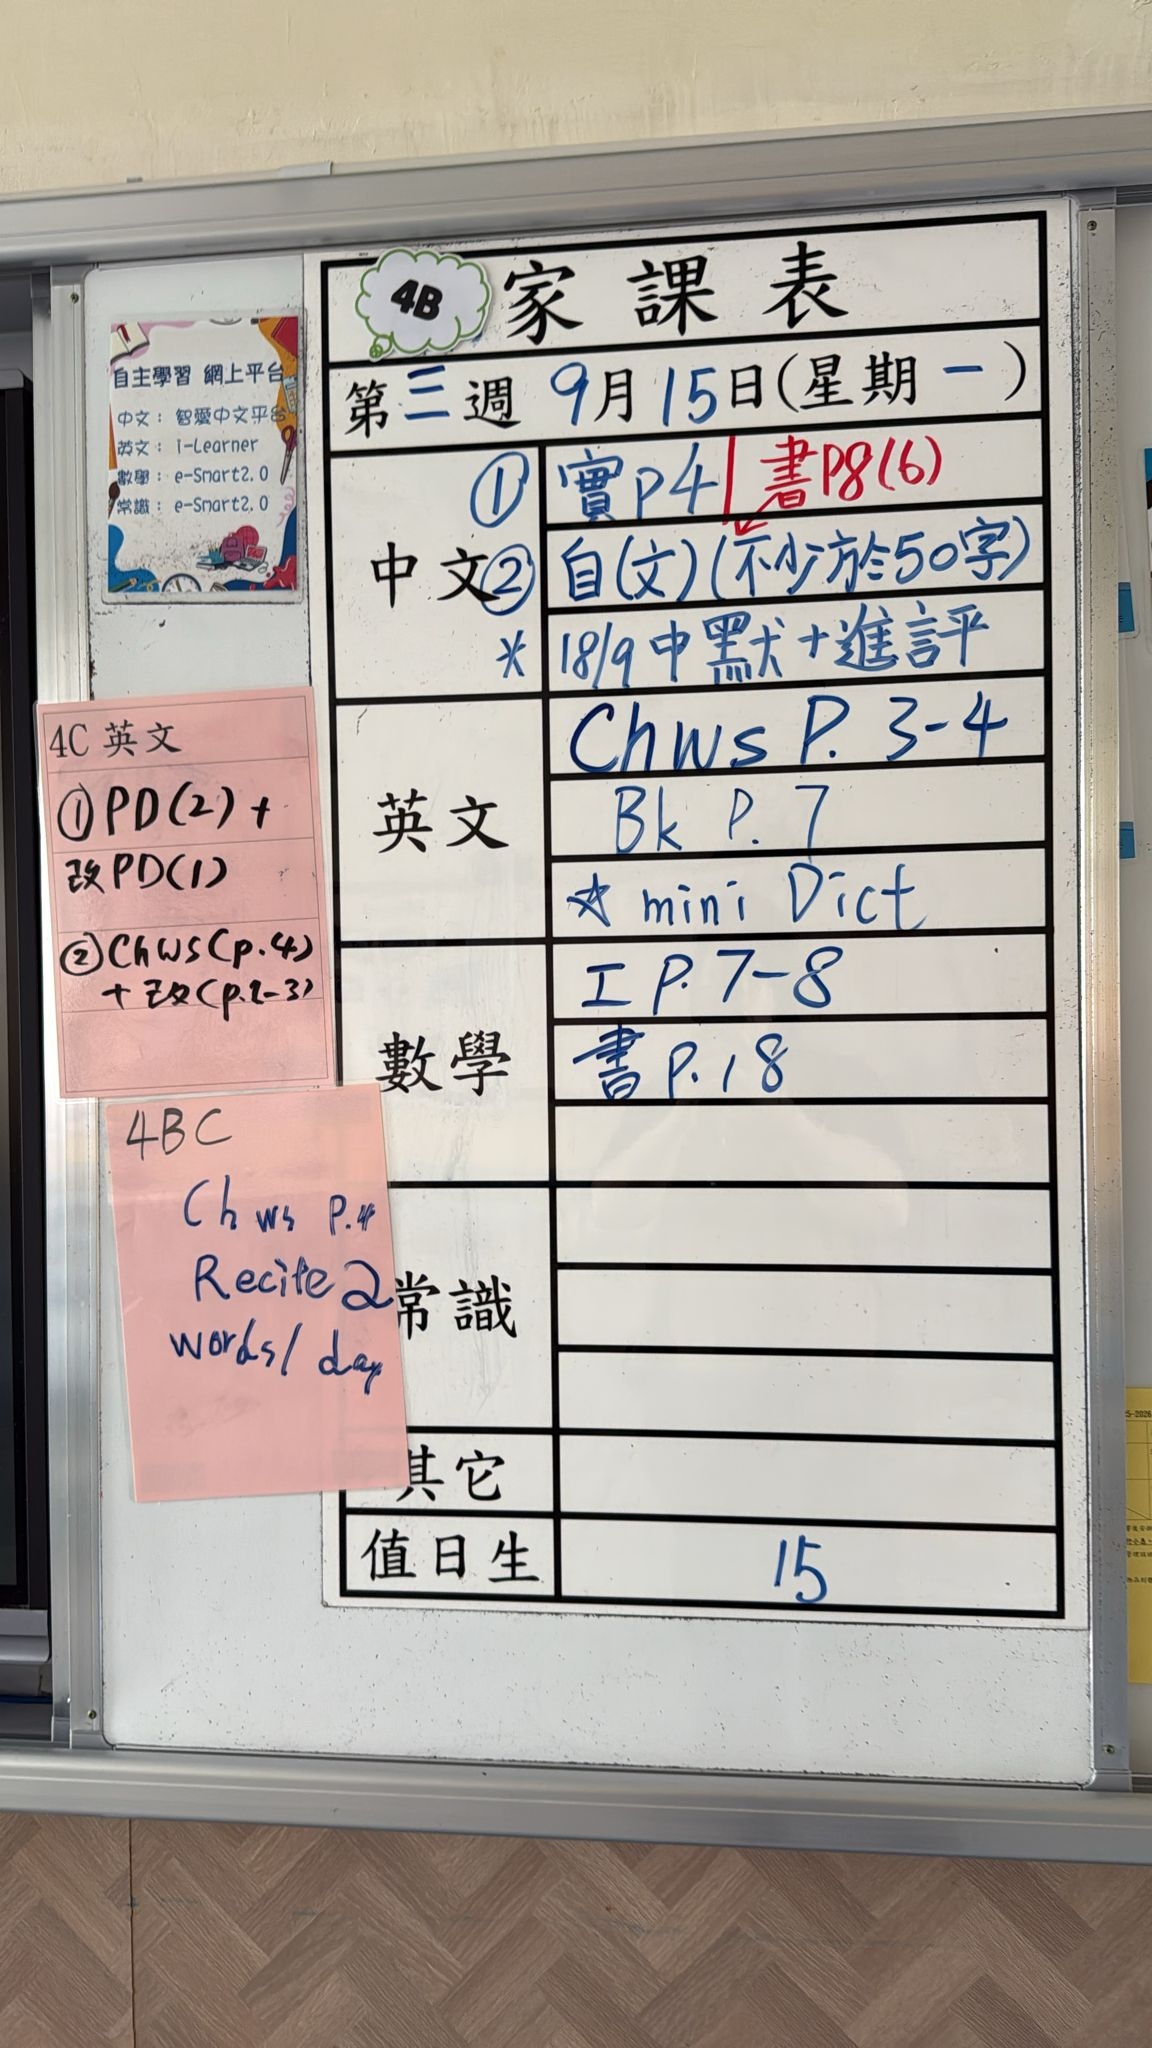 4B 家課表
第三週 9月15日(星期一)
中文
① 實p4 | 書P8(6)
② 自(文)(不少於50字)
* 18/9 中默+進評
英文
Chws P. 3-4
Bk P. 7
☆ mini Dict
數學
工 p. 7-8
書 p. 18
常識
其它
值日生 15
自主學習 網上平台
中文：智愛中文平台
英文：i-Learner
數學：e-Smart2.0
常識：e-Smart2.0
4C 英文
① PD(2) +
改PD(1)
② Chws(p.4)
+改(p.2-3)
4BC
Ch ws P.4
Recite 2
words/ day
5-2026